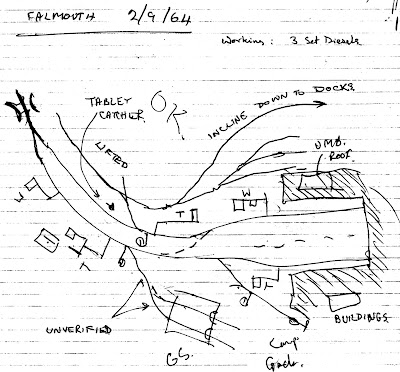 FALMOUTH 2/9/64
Working: 3 Set Diesels
TABLET
CATCHER.
OK.
INCLINE DOWN TO DOCKS.
LIFTED
UMB.
ROOF.
W
T
W
T
T
UNVERIFIED
GS.
BUILDINGS.